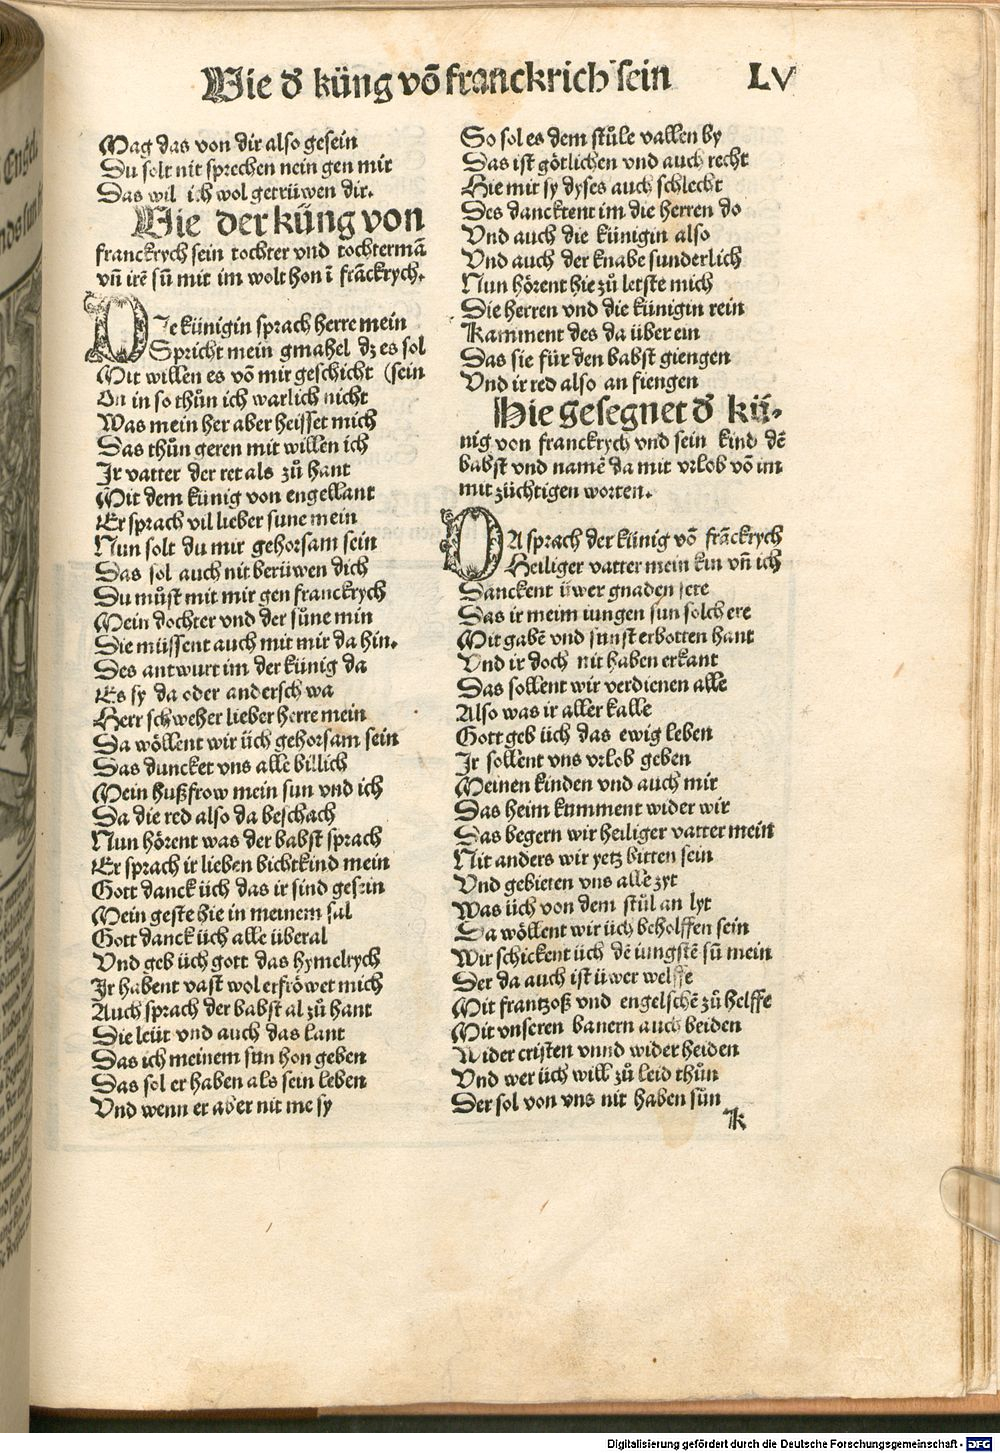 Wie d̕ küng võ franckrich sein LV
Mag das von dir also gesein
Du solt nit sprechen nein gen mir
Das wil ich wol getrüwen dir.
Wie der küng von
franckrych sein tochter vnd tochtermã
vñ irẽ sũ mit im wolt hon ĩ frãckrych.
Die künigin sprach herre mein
Spricht mein gmahel dz es sol
Mit willen es võ mir geschicht (sein
On in so thůn ich warlich nicht
Was mein her aber heisset mich
Das thůn geren mit willen ich
Ir vatter der ret als zů hant
Mit dem künig von engellant
Er sprach vil lieber sune mein
Nun solt du mir gehorsam sein
Das sol auch nit berüwen dich
Du můst mit mir gen franckrych
Mein dochter vnd der süne min
Die müssent auch mit mir da hin.
Des antwurt im der künig da
Es sy da oder andersch wa
Herr schweher lieber herre mein
Da wöllent wir üch gehorsam sein
Das duncket vns alle billich
Mein hußfrow mein sun vnd ich
Da die red also da beschach
Nun hörent was der babst sprach
Er sprach ir lieben bichtkind mein
Gott danck üch das ir sind gesein
Mein geste hie in meinem sal
Gott danck üch alle überal
Vnd geb üch gott das hymelrych
Ir habent vast wol erfröwet mich
Auch sprach der babst al zů hant
Die leüt vnd auch das lant
Das ich meinem sun hon geben
Das sol er haben als sein leben
Vnd wenn er aber nit me sy
So sol es dem stůle vallen by
Das ist götlichen vnd auch recht
Hie mit sy dyses auch schlecht
Des dancktent im die herren do
Vnd auch die künigin also
Vnd auch der knabe sunderlich
Nun hörent hie zů letste mich
Die herren vnd die künigin rein
Kamment des da über ein
Das sie für den babst giengen
Vnd ir red also an fiengen
Hie gesegnet d̕ kü-
nig von franckrych vnd sein kind dẽ
babst vnd namẽ da mit vrlob võ im
mit züchtigen worten.
DA sprach der künig võ frãckrych
Heiliger vatter mein kin vñ ich
Danckent üwer gnaden sere
Das ir meim iungen sun solch ere
Mit gabẽ vnd sunst erbotten hant
Vnd ir doch nit haben erkant
Das sollent wir verdienen alle
Also was ir aller kalle
Gott geb üch das ewig leben
Ir sollent vns vrlob geben
Meinen kinden vnd auch mir
Das heim kumment wider wir
Das begern wir heiliger vatter mein
Nit anders wir yetz bitten sein
Vnd gebieten vns alle zyt
Was üch von dem stůl an lyt
Da wöllent wir üch beholffen sein
Wir schickent üch dẽ iungstẽ sũ mein
Der da auch ist üwer welffe
Mit frantzoß vnd engelschẽ zů helffe
Mit vnseren banern auch beiden
Wider cristen vnnd wider heiden
Vnd wer üch will zů leid thůn
Der sol von vns nit haben sůn
k
Digitalisierung gefördert durch die Deutsche Forschungsgemeinschaft - DFG